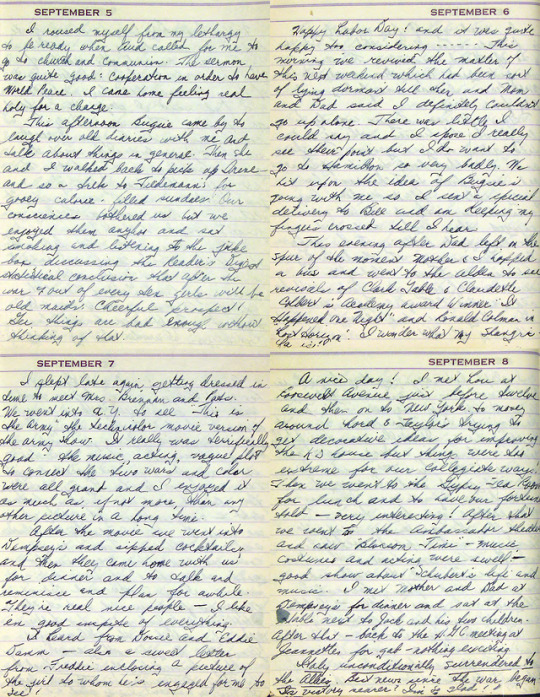 SEPTEMBER 5
I roused myself from my lethargy
to be ready when Lud called for me to
go to church and communion. The sermon
was quite good: cooperation in order to have
World Peace. I came home feeling real
holy for a change.
This afternoon Bugsie came by to
laugh over old diaries with me and
talk about things in general. Then she
and I walked back to pick up Irene
and so a trek to Tiedemann's for
gooey calorie-filled sundaes. Our
consciences bothered us but we
enjoyed them anyhow and sat
smoking and listening to the juke
box discussing the Reader's Digest
statistical conclusion that after the
war 7 out of every ten girls will be
old maids. Cheerful prospect!
Gee things are bad enough without
thinking of that.
SEPTEMBER 6
Happy Labor Day! and it was quite
happy too considering ------ This
morning we revived the matter of
this next weekend which had been sort
of lying dormant till then and Mom
and Dad said I definitely couldn't
go up alone. There was little I
could say and I s'pose I really
see their point but I do want to
go to Hamilton so very badly. We
hit upon the idea of Bugsie's
going with me so I sent a special
delivery to Bill and am keeping my
fingers crossed till I hear.
This evening after Dad left on the
spur of the moment Mother & I hopped
a bus and went to the Alden to see
revivals of Clark Gable & Claudette
Colbert in Academy award winner "It
Happened One Night" and Ronald Colman in
"Lost Horizon". I wonder what my Shangri-
la is?
SEPTEMBER 7
I slept late again, getting dressed in
time to meet Mrs. Brennan and Patsy.
We went into N.Y. to see "This is
the Army" the technicolor movie version of
the army show. It really was terrifically
good - the music, acting, vague plot
to connect the two wars and color
were all grand and I enjoyed it
as much as, if not more, than any
other picture in a long time.
After the movie we went into
Dempsey's and sipped cocktails
and then they came home with us
for dinner and to talk and
reminisce and plan for awhile.
They're real nice people - I like
'em good inspite of everything.
I heard from Dowie and Eddie
Damm - also a sweet letter
from Freddie enclosing a picture of
the girl to whom he's engaged for me to
see!
SEPTEMBER 8
A nice day! I met Lou at
Roosevelt Avenue just before twelve
and then on to New York to mosey
around Lord & Taylor's trying to
get decorative ideas for improving
the K.S house but things were too
extreme for our collegiate ways.
Then we went to the Gypsy Tea Room
for lunch and to have our fortunes
told - very interesting! After that
we went to the Ambassador theater
and saw "Blossom Time" - music,
costumes and acting were swell -
good show about Schubert's life and
music. I met Mother and Dad at
Dempsey's for dinner and sat at the
table next to Jack and his two children.
After that - back to the meeting at
Jeannette's for get - nothing exciting.
Italy unconditionally surrendered to
the Allies. Best news since the war began
Its victory nearer!